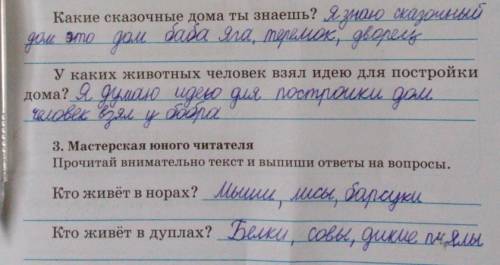 Какие сказочные дома ты знаешь? Я знаю сказочный
дом это дом баба яга, теремок, дворец
У каких животных человек взял идею для постройки
дома? Я думаю идею для постройки дом
человек взял у бобра
3. Мастерская юного читателя
Прочитай внимательно текст и выпиши ответы на вопросы.
Кто живёт в норах? Мыши, лисы, барсуки
Кто живёт в дуплах? Белки, совы, дикие пчёлы